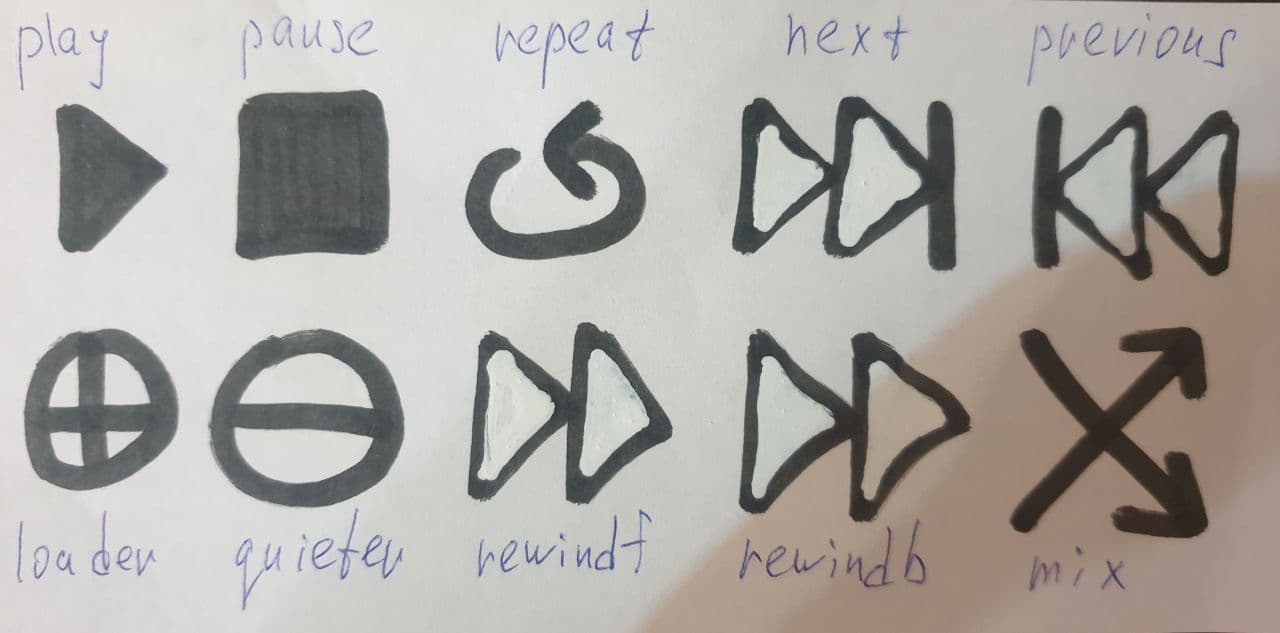 play pause repeat next previous
loader quieter rewindf rewindb mix